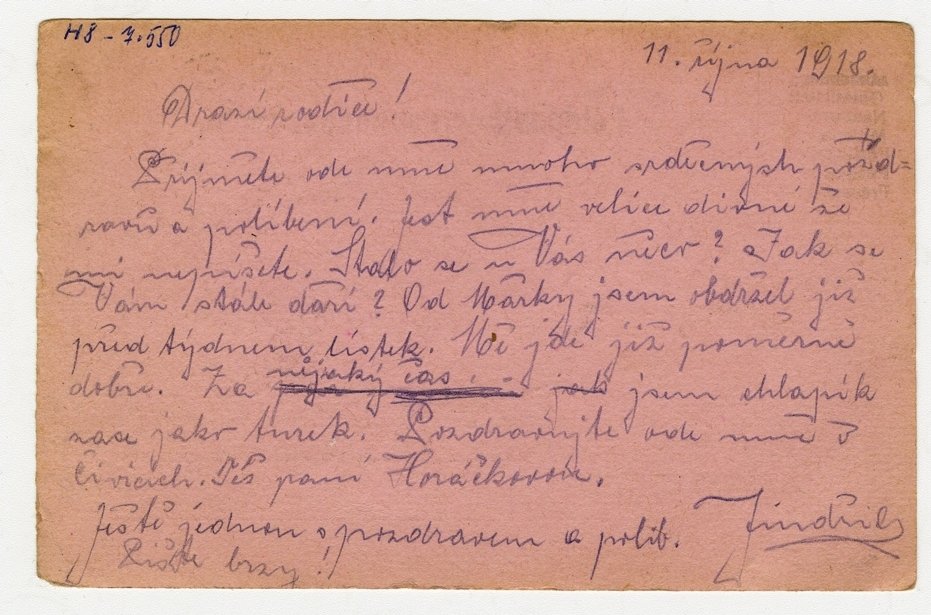 H8 - 7.550
11. října 1918.
Drazí rodiče!
Přijměte ode mne mnoho srdečných pozd=
ravů a políbení. Jest mně velice divné že
mi nepíšete. Stalo se u Vás něco? Jak se
Vám stále daří? Od Mařky jsem obdržel již
před týdnem lístek. Mě jde již poměrně
dobře. Za nějaký čas jsem chlapík
zase jako turek. Pozdravujte ode mně v
Čivicích. Též paní Horáčkovou.
Ještě jednou s pozdravem a políb. Jindřich
Pište brzy!